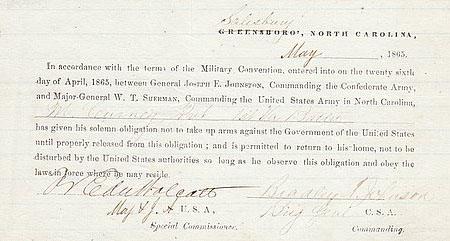 Salisbury
GREENSBORO', NORTH CAROLINA,
May , 1865.
In accordance with the terms of the Military Convention, entered into on the twenty sixth
day of April, 1865, between General JOSEPH E. JOHNSTON, Commanding the Confederate Army,
and Major-General W. T. SHERMAN, Commanding the United States Army in North Carolina,
has given his solemn obligation not to take up arms against the Government of the United States
until properly released from this obligation; and is permitted to return to his home, not to be
disturbed by the United States authorities so long as he observe this obligation and obey the
laws in force where he may reside.
Bradley T Johnson
Maj & J. A U. S. A., Brig Genl C. S. A.
Special Commissioner. Commanding.